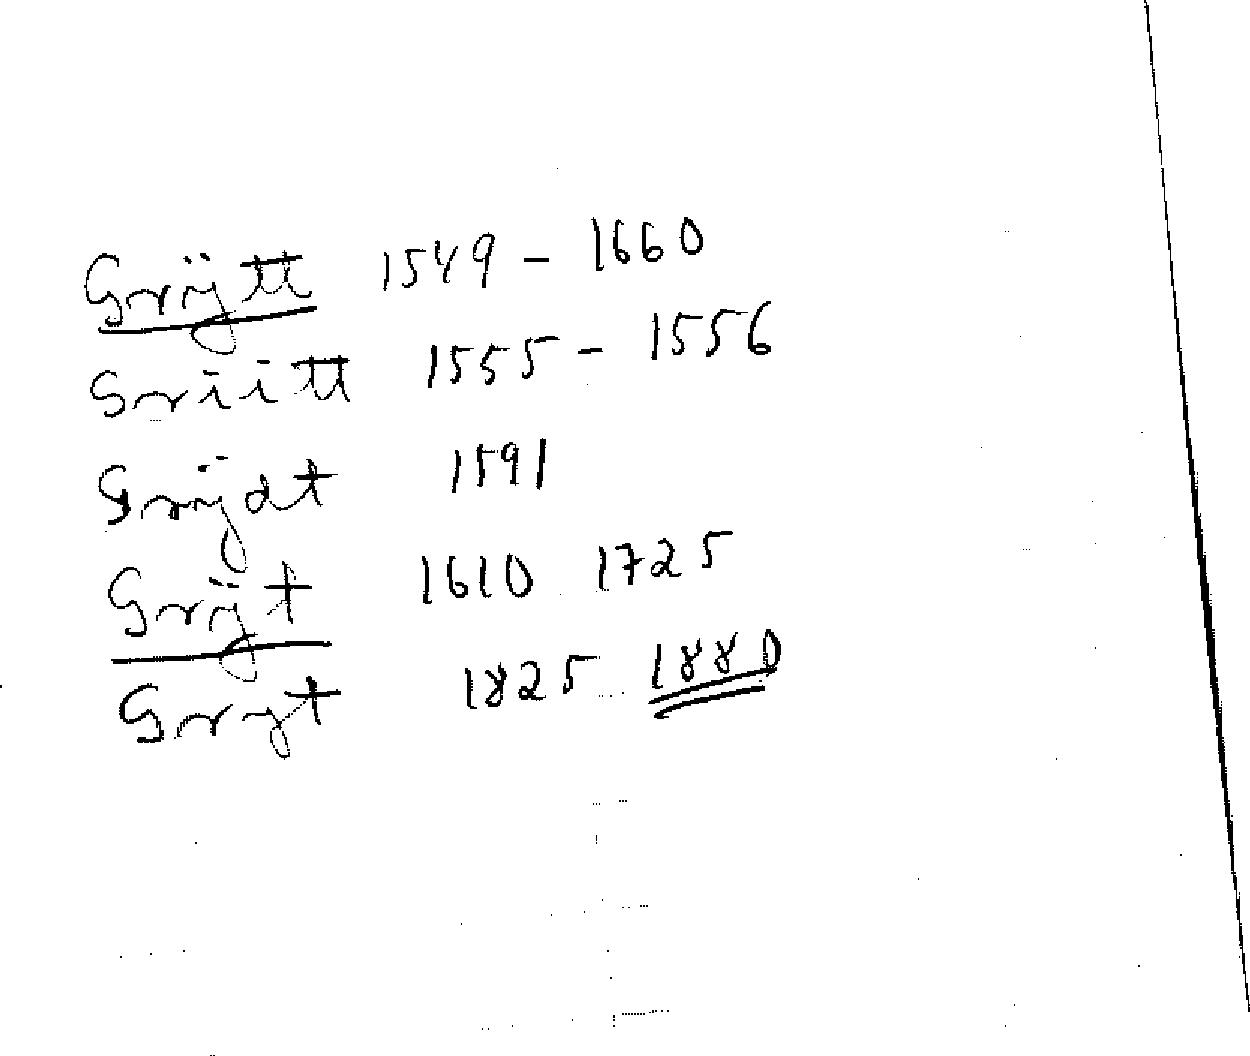 Grÿtt 1549 - 1660
Griitt 1555 - 1556
Grÿdt 1591
Grÿt 1610 1725
Gryt 1825 1880